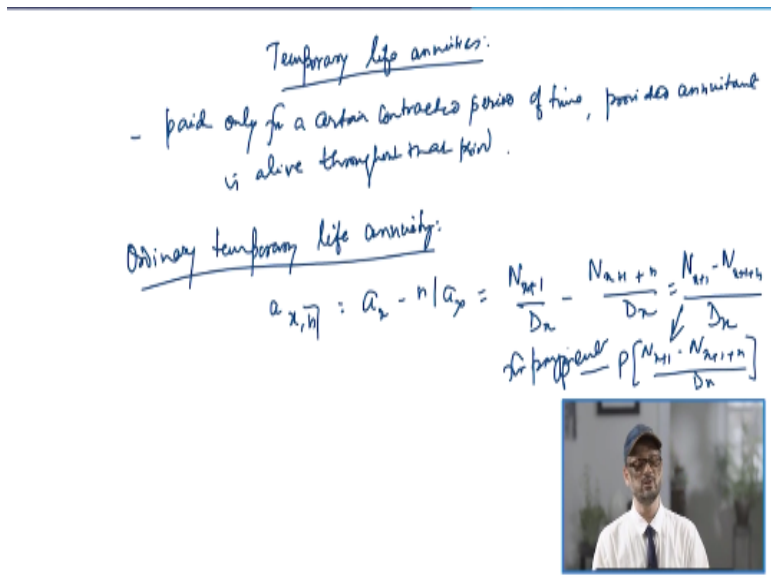 Temporary life annuities:
- paid only for a certain contracted period of time, provided annuitant
is alive throughout that period.
Ordinary temporary life annuity:
a_{x,n̅|} = a_x - n|a_x = N_{x+1}/D_x - N_{x+1+n}/D_x = (N_{x+1} - N_{x+1+n})/D_x
for payment P[(N_{x+1} - N_{x+1+n})/D_x]